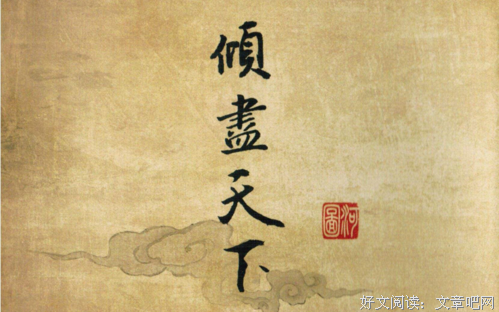 傾盡天下
河圖
好文阅读：文章吧网